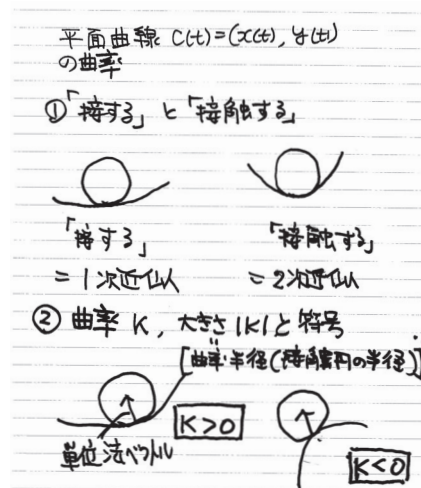 平面曲線 C(t)=(x(t), y(t))
の曲率
①「接する」と「接触する」
「接する」 「接触する」
=1次近似 =2次近似
② 曲率 K, 大きさ|K|と符号
[曲率半径(接触円の半径)]
K>0
単位法ベクトル
K<0